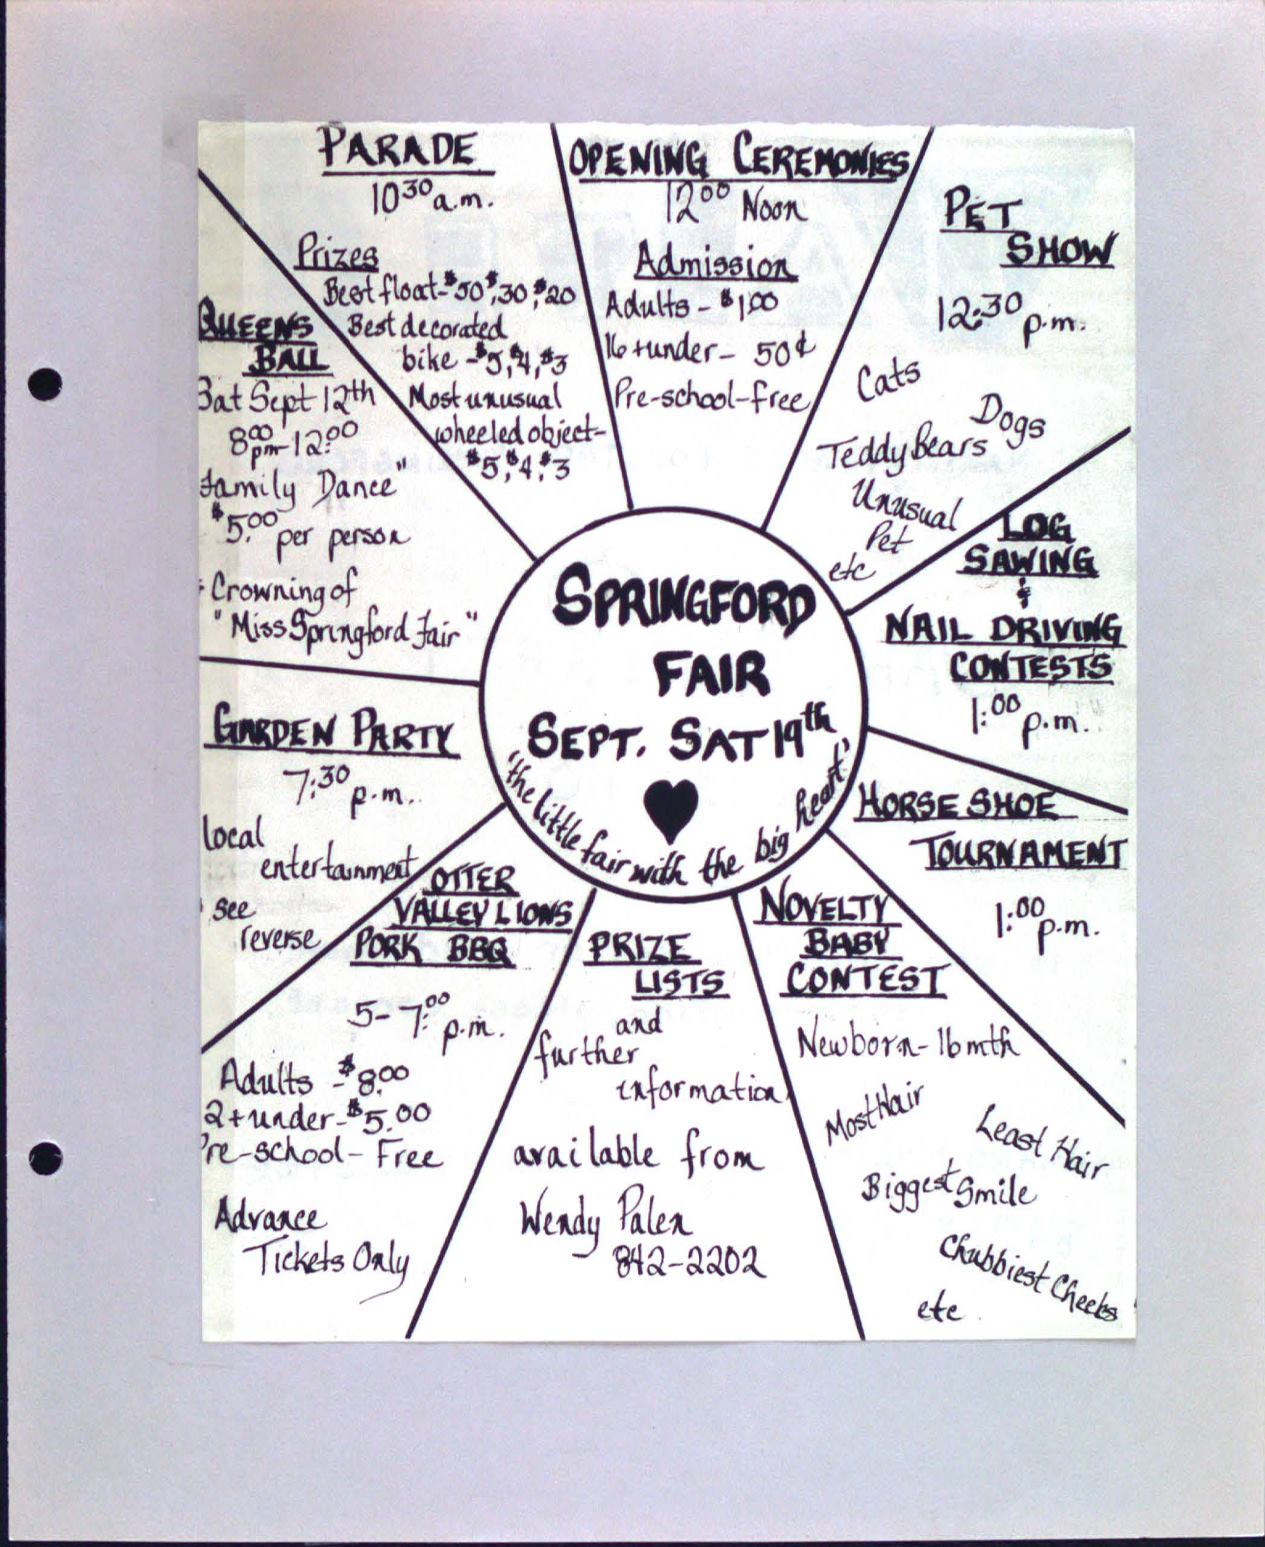 PARADE
10:30 a.m.
Prizes
Best float-$50,$30,$20
Best decorated
bike -$5,$4,$3
Most unusual
wheeled object-
$5,$4,$3
OPENING CEREMONIES
12:00 Noon
Admission
Adults - $1.00
16 + under - 50¢
Pre-school-free
PET
SHOW
12:30 p.m.
Cats
Dogs
Teddy Bears
Unusual
Pet
etc
LOG
SAWING
&
NAIL DRIVING
CONTESTS
1:00 p.m.
HORSE SHOE
TOURNAMENT
1:00 p.m.
NOVELTY
BABY
CONTEST
Newborn-16 mth
Most Hair
Least Hair
Biggest Smile
Chubbiest Cheeks
etc
PRIZE
LISTS
and
further
information
available from
Wendy Palen
842-2202
OTTER
VALLEY LIONS
PORK BBQ
5-7:00 p.m.
Adults -$8.00
2+under-$5.00
Pre-school-Free
Advance
Tickets Only
GARDEN PARTY
7:30 p.m.
local
entertainment
see
reverse
QUEENS
BALL
Sat Sept 12th
8:00 pm-12:00
family Dance"
$5.00 per person
Crowning of
"Miss Springford Fair"
SPRINGFORD
FAIR
SEPT. SAT 19th
"the little fair with the big heart"